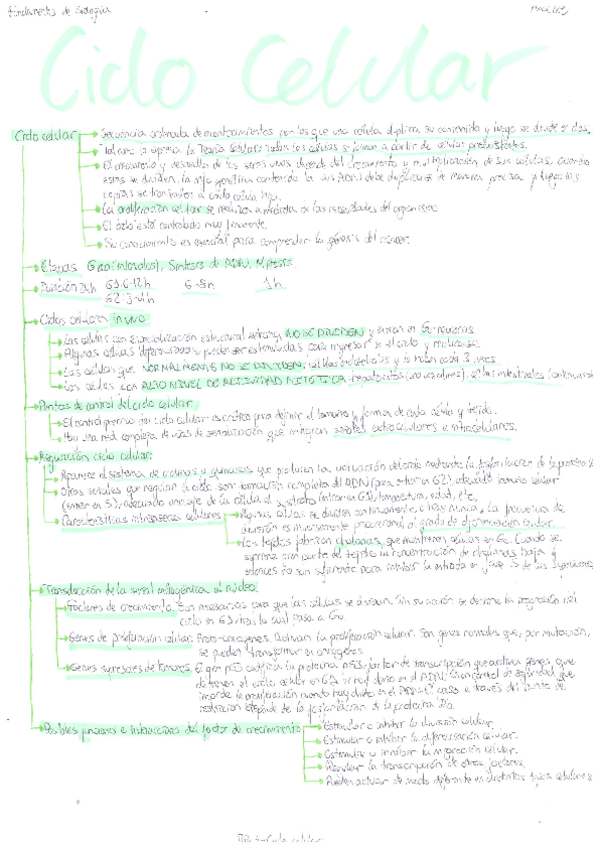 Fundamentos de Biología
Ciclo Celular
Ciclo celular
Secuencia ordenada de acontecimientos por los que una célula duplica su contenido y luego se divide en dos.
Tal como lo expresa la Teoría Celular: todas las células se forman a partir de células preexistentes.
El crecimiento y desarrollo de los seres vivos depende del crecimiento y multiplicación de sus células, cuando
estas se dividen, la info genética contenida en su ADN debe duplicarse de manera precisa y luego las
copias se transmiten a cada célula hija.
La proliferación celular se realiza a medida de las necesidades del organismo.
El ciclo está controlado muy finamente.
Su conocimiento es esencial para comprender la génesis del cáncer.
Etapas Gap (intervalos), Síntesis de ADN, Mitosis
Duración 24h G1: 6-12h 6-8h 1h
G2: 3-4h
Ciclos celulares in vivo
Las células con especialización estructural extrema NO SE DIVIDEN y entran en G0: neuronas
Algunas células diferenciadas pueden ser estimuladas para ingresar en el ciclo y multiplicarse.
Las células que NORMALMENTE NO SE DIVIDEN:
Las células con ALTO NIVEL DE ACTIVIDAD MITÓTICA
Puntos de control del ciclo celular
El control preciso del ciclo celular es crítico para definir el tamaño y forma de cada célula y tejido.
Hay una red compleja de vías de señalización que integran señales extracelulares e intracelulares.
Regulación ciclo celular
Aparece el sistema de ciclinas y quinasas que producen la activación del ciclo mediante la fosforilación de la proteína
Otras señales que regulan el ciclo son formación completa del ADN (para entrar en G2), adecuado tamaño celular
(entrar en S), adecuado anclaje de la célula al sustrato (entrar en G1), temperatura, edad, etc.
Características intrínsecas celulares
Algunas células se dividen continuamente, otras nunca. La frecuencia de
división es inversamente proporcional al grado de diferenciación celular.
Los tejidos fabrican chalonas, que mantienen células en G0. Cuando se
suprime una parte del tejido la concentración de chalonas baja y
entonces no son suficientes para inhibir la entrada en fase S de las
Transducción de la señal mitogénica al núcleo
Factores de crecimiento. Son necesarios para que las células se dividan. Sin su acción se detiene la progresión del
ciclo en G1, tras lo cual pasa a G0.
Genes de proliferación celular. Proto-oncogenes. Activan la proliferación celular. Son genes normales que, por mutación,
se pueden transformar en oncogenes
Genes supresores de tumores. El gen p53 codifica la proteína p53, factor de transcripción que activa genes que
detienen el ciclo celular en G1 si hay daño en el ADN. Es un control de seguridad que
impide la proliferación cuando hay daño en el ADN. El caso a través del punto de
restricción depende de la fosforilación de la proteína Rb.
Posibles funciones e interacciones del factor de crecimiento
Estimular o inhibir la división celular.
Estimular o inhibir la diferenciación celular.
Estimular o inhibir la migración celular.
Regular la transcripción de otros factores.
Pueden actuar de modo diferente en distintos tipos celulares